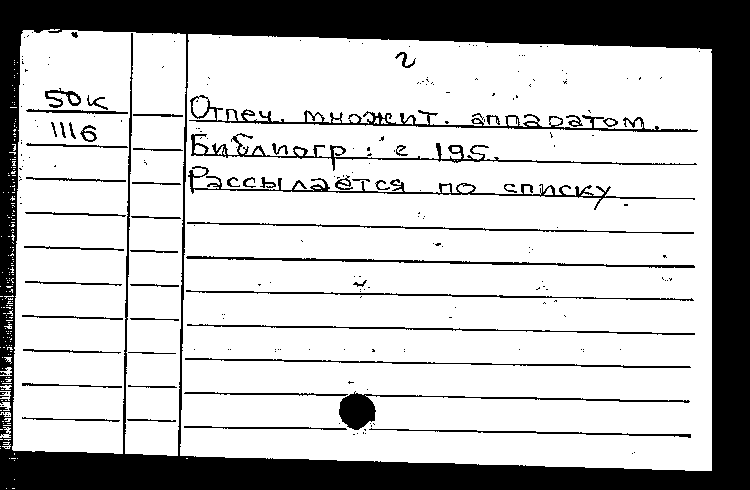 2
50к
1116
Отпеч. множит. аппаратом.
Библиогр: с. 195.
Рассылается по списку.